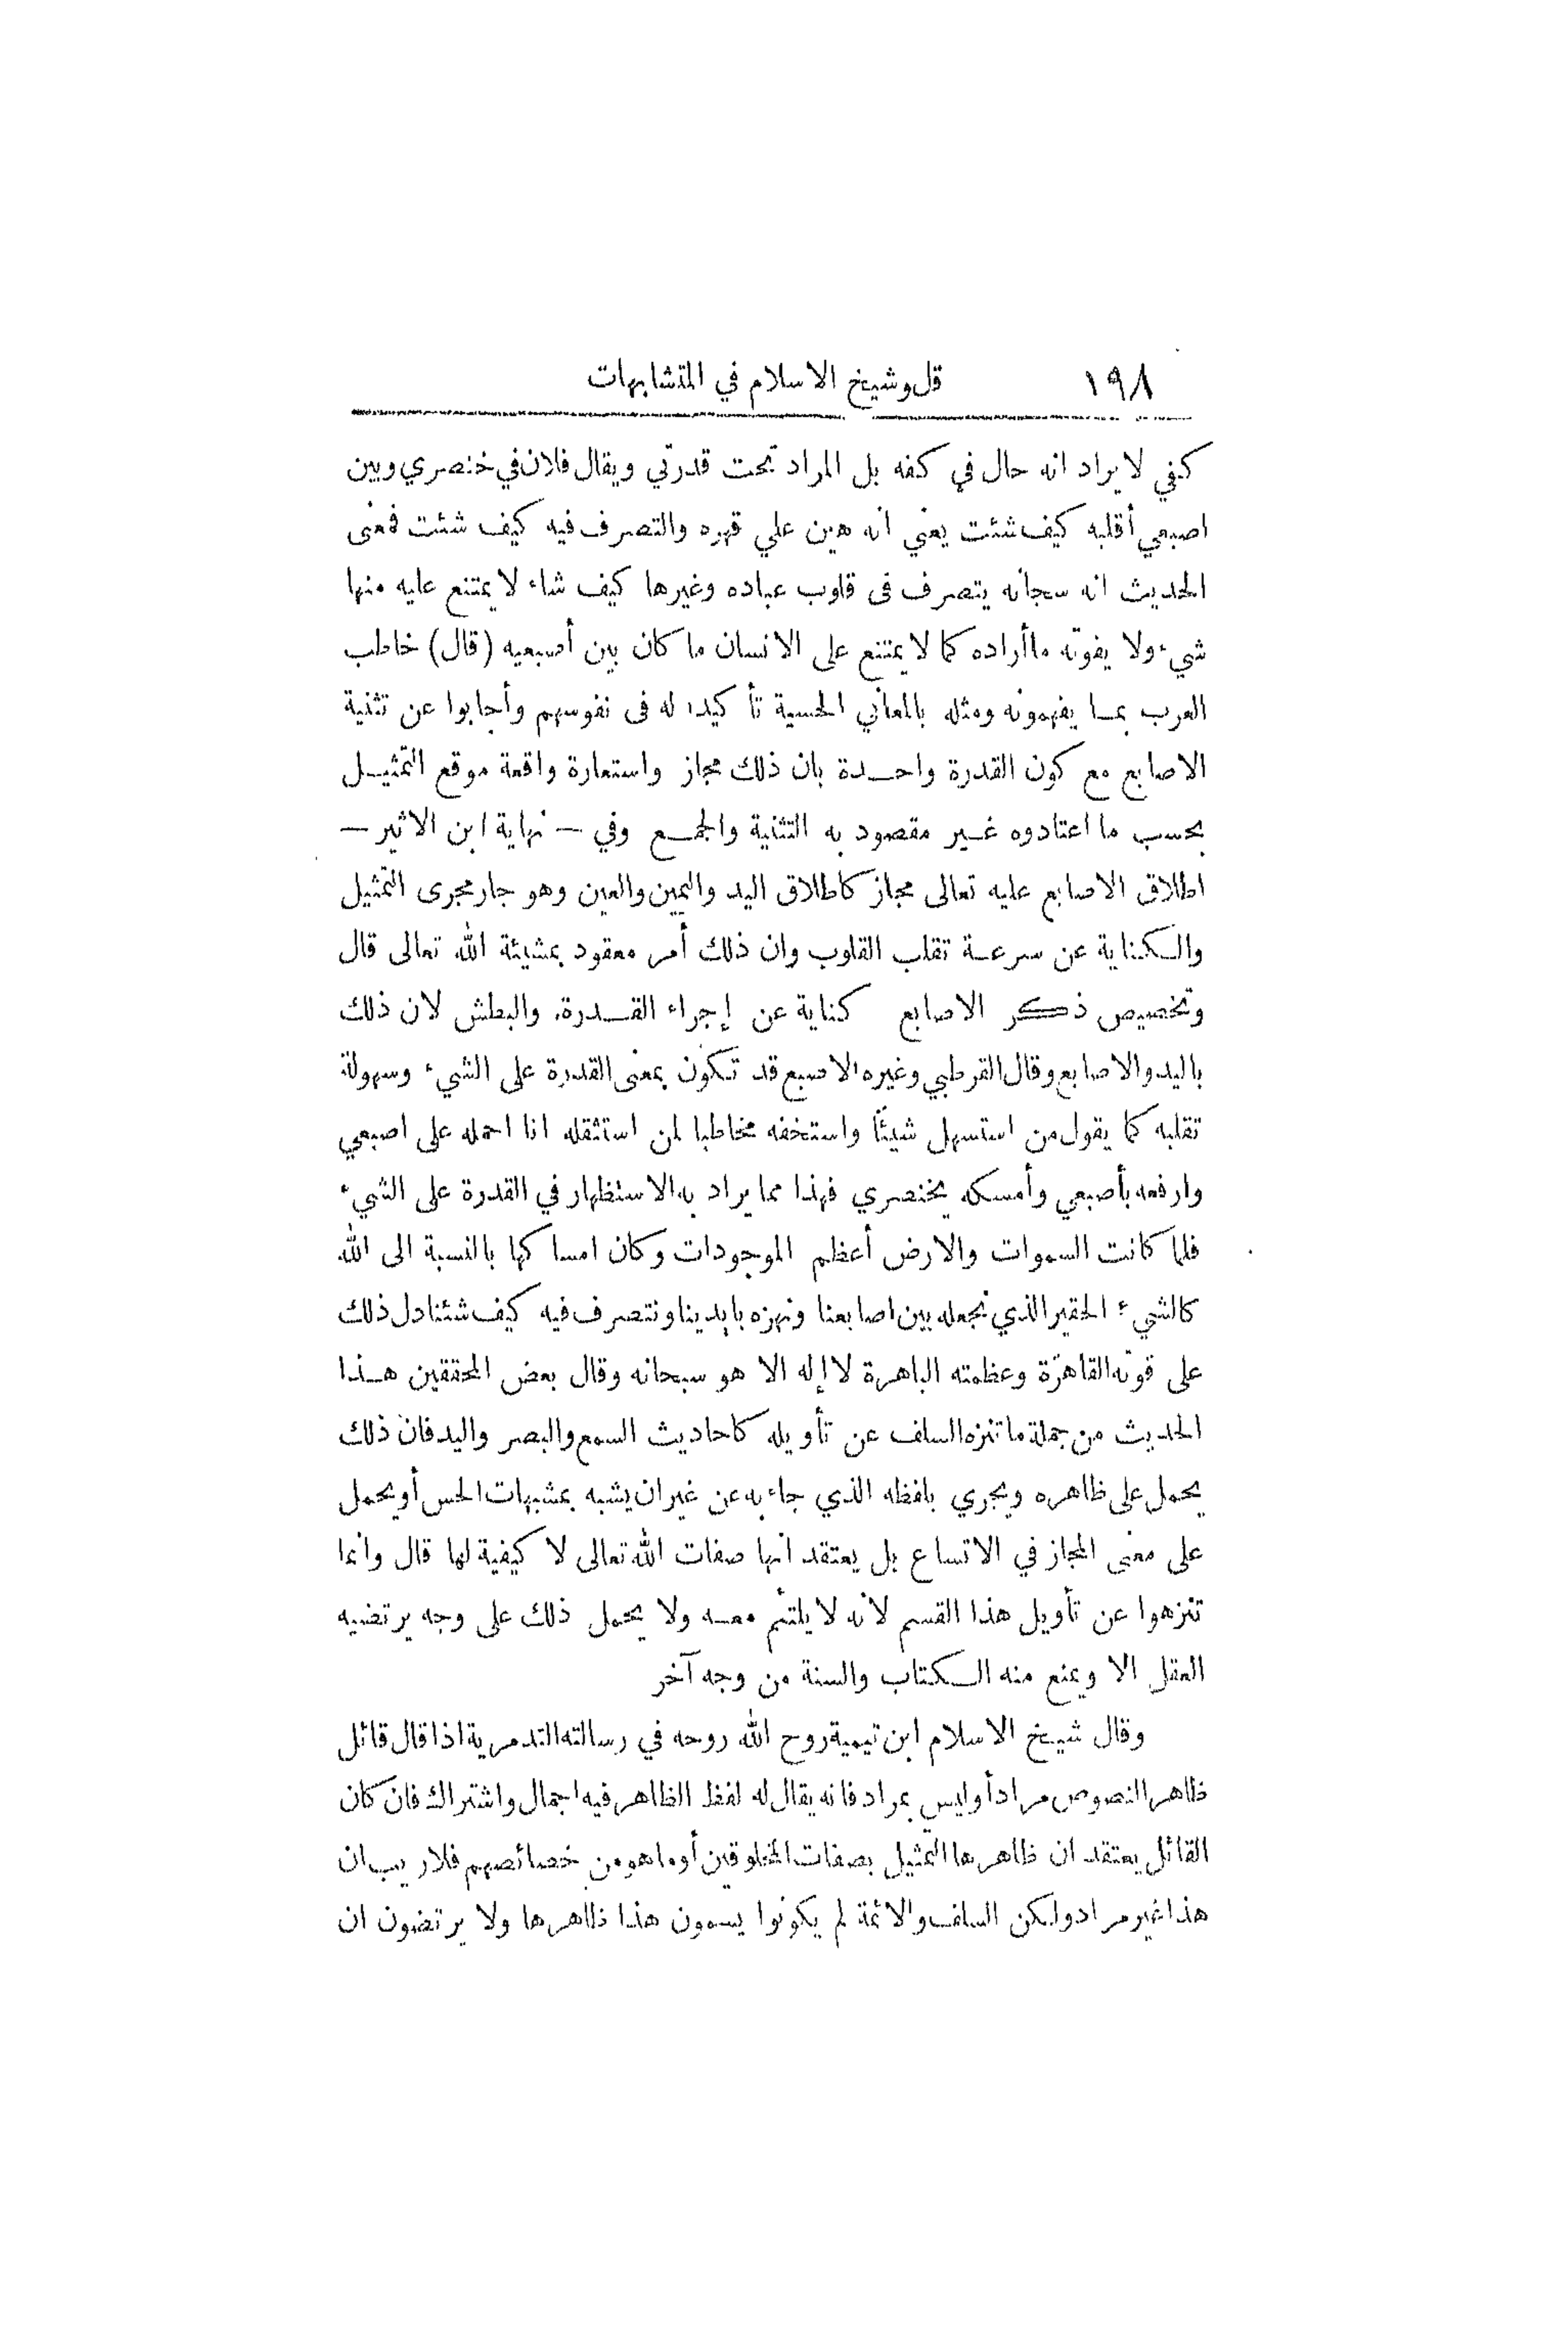 ١٩٨ قل وشيخ الاسلام في المتشابهات
كفي لا يراد انه حال في كفه بل المراد تحت قدرتي ويقال فلان في خنصري وبين
اصبعي أقلبه كيف شئت يعني انه هين علي قهره والتصرف فيه كيف شئت فمعنى
الحديث انه سبحانه يتصرف فى قلوب عباده وغيرها كيف شاء لا يمتنع عليه منها
شيء ولا يفوته ما أراده كما لا يمتنع على الانسان ما كان بين أصبعيه (قال) خاطب
العرب بمـا يفهمونه ومثله بالمعاني الحسية تأكيدا له فى نفوسهم وأجابوا عن تثنية
الاصابع مع كون القدرة واحـدة بان ذلك مجاز واستعارة واقعة موقع التمثيـل
بحسب ما اعتادوه غـير مقصود به التثنية والجمـع وفي — نهاية ابن الاثير —
اطلاق الاصابع عليه تعالى مجاز كاطلاق اليد واليمين والعين وهو جار مجرى التمثيل
والـكناية عن سرعـة تقلب القلوب وان ذلك أمر معقود بمشيئة الله تعالى قال
وتخصيص ذكر الاصابع كناية عن إجراء القـدرة. والبطش لان ذلك
باليد والاصابع وقال القرطبي وغيره الاصبع قد تكون بمعنى القدرة على الشيء وسهولة
تقلبه كما يقول من استسهل شيئًا واستخفه مخاطبا لمن استثقله انا احمله على اصبعي
وارفعه بأصبعي وأمسكه بخنصري فهذا مما يراد به الاستظهار في القدرة على الشيء
فلما كانت السموات والارض أعظم الموجودات وكان امساكها بالنسبة الى الله
كالشيء الحقير الذي نجعله بين اصابعنا ونهزه بايدينا ونتصرف فيه كيف شئنا دل ذلك
على قوته القاهرة وعظمته الباهرة لا إله الا هو سبحانه وقال بعض المحققين هـذا
الحديث من جملة ما تنزه السلف عن تأويله كاحاديث السمع والبصر واليد فان ذلك
يحمل على ظاهره ويجري بلفظه الذي جاء به عن غير ان يشبه بمشبهات الحس أو يحمل
على معنى المجاز في الاتساع بل يعتقد انها صفات الله تعالى لا كيفية لها قال وانما
تنزهوا عن تأويل هذا القسم لانه لا يلتئم معـه ولا يحمل ذلك على وجه يرتضيه
العقل الا ويمنع منه الـكتاب والسنة من وجه آخر
وقال شيخ الاسلام ابن تيمية روح الله روحه في رسالته التدمرية اذا قال قائل
ظاهر النصوص مراد أو ليس بمراد فانه يقال له لفظ الظاهر فيه اجمال واشتراك فان كان
القائل يعتقد ان ظاهرها التمثيل بصفات المخلوقين أو ما هو من خصائصهم فلا ريب ان
هذا غير مراد ولكن السلف والائمة لم يكونوا يسمون هذا ظاهرها ولا يرتضون ان